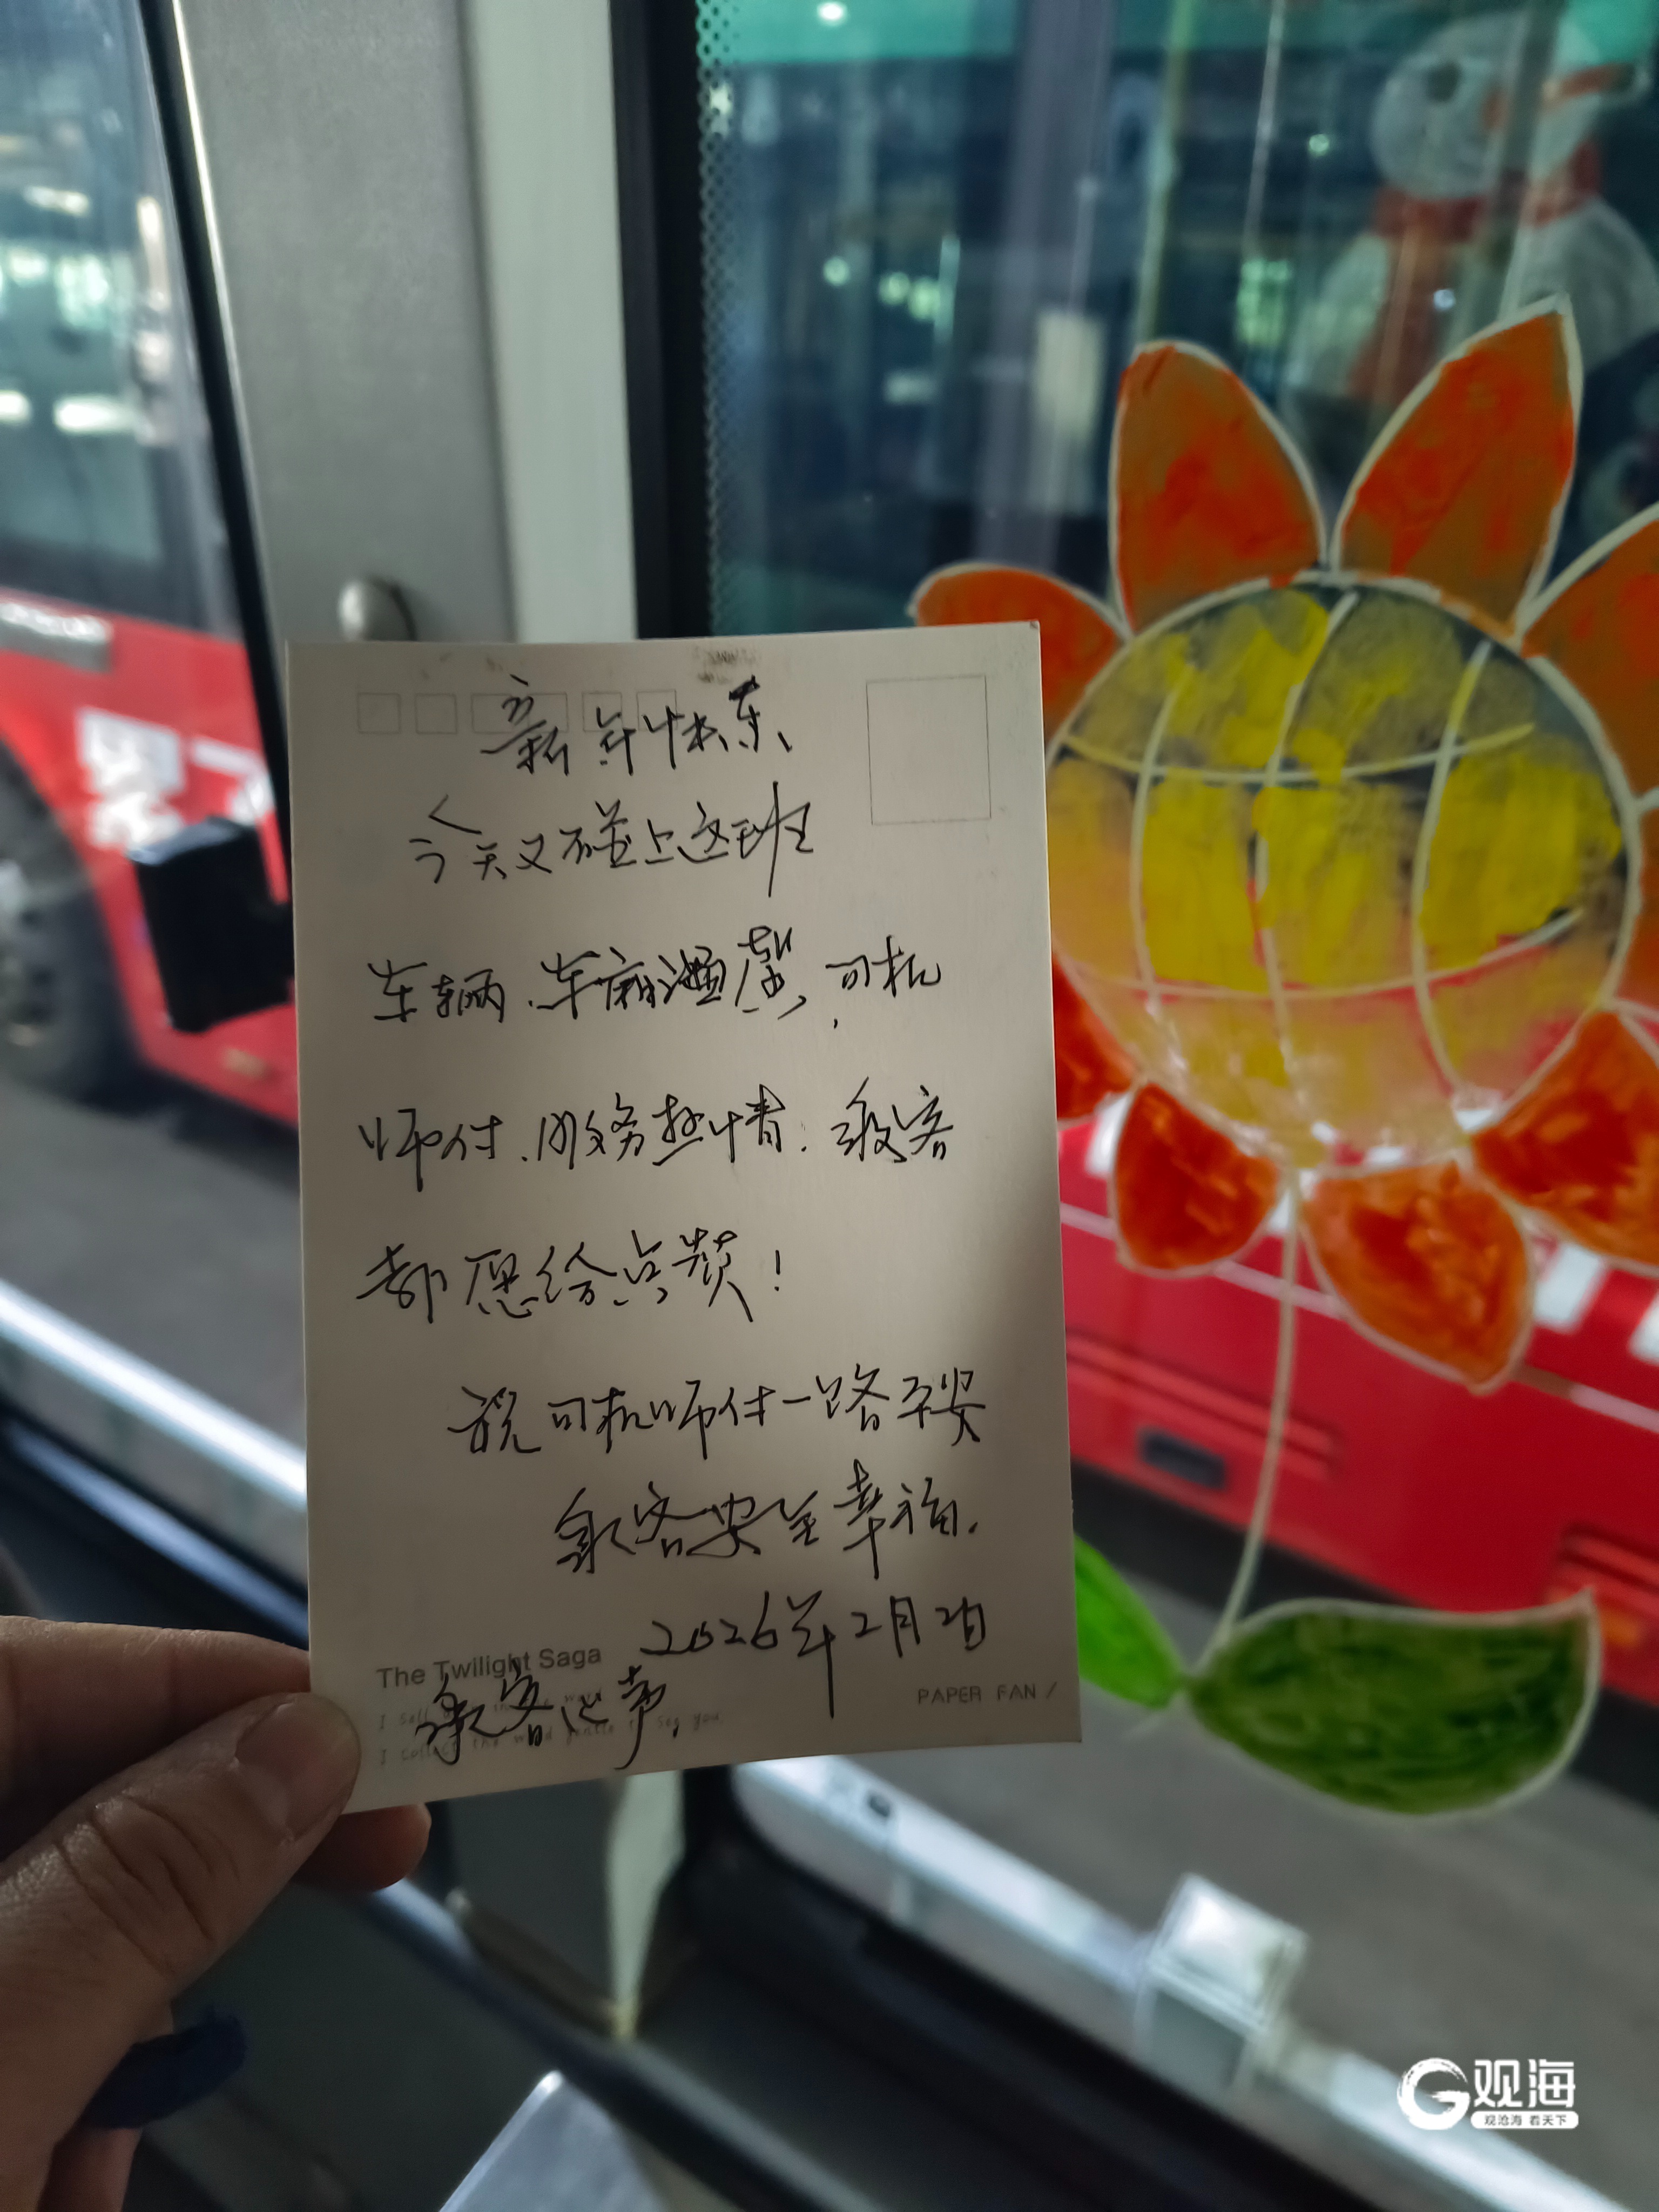 新年快乐
今天又碰上这班
车辆.车厢温馨,司机
师付.服务热情.乘客
都愿给点赞!
祝司机师付一路平安
乘客安全幸福.
2026年2月2日
The Twilight Saga
乘客心声.
PAPER FAN /
观海
观沧海 看天下